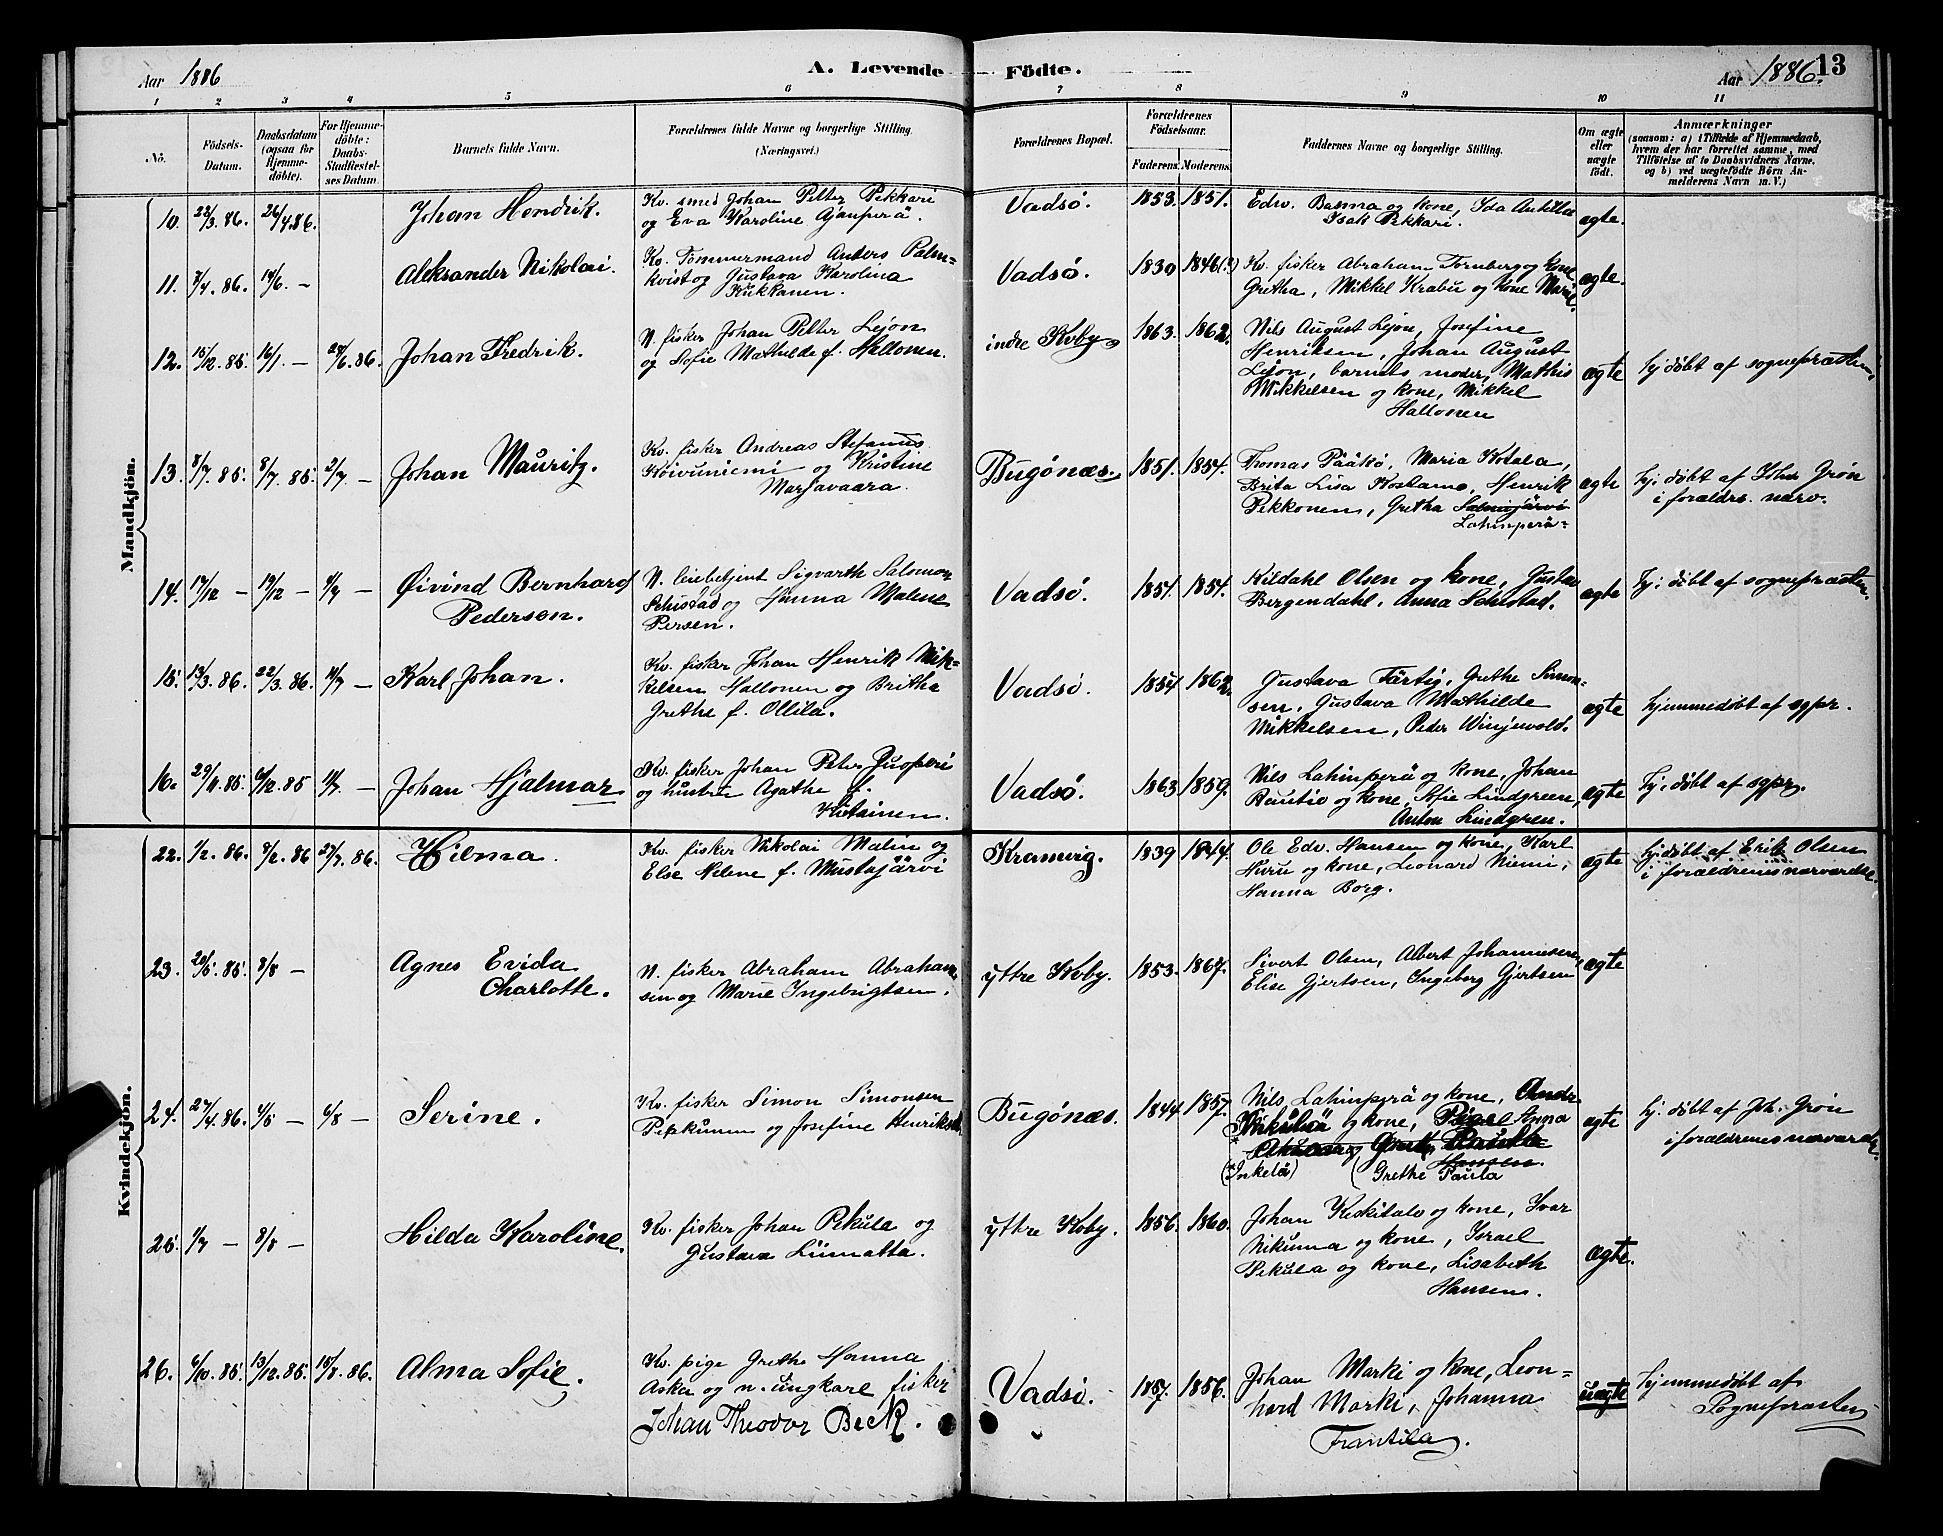 Aar 1886 A. Levende Födte. Aar 1886. 13
1 2 3 4 5 6 7 8 9 10 11
Nö.
Födsels-
Datum.
Daabsdatum
(ogsaa for
Hjemme-
döbte).
For Hjemme-
döbte:
Daabs-
Stadfæstel-
ses Datum.
Barnets fulde Navn.
Forældrenes fulde Navne og borgerlige Stilling.
(Næringsvei.)
Forældrenes Bopæl.
Forældrenes
Födselsaar.
Faderens. Moderens.
Faddernes Navne og borgerlige Stilling.
Om ægte
eller
uægte
födt.
Anmærkninger
(saasom: a) i Tilfælde af Hjemmedaab,
hvem der har forrettet samme, med
Tilföielse af to Daabsvidners Navne,
og b) ved uægtefödte Börn An-
melderens Navn m. V.)
Mandkjön.
10. 22/3. 86. 26/4 86. Johan Hendrik.
Kv. smed Johan Petter Pekkari
og Eva Karoline Ajanperä.
Vadsö. 1853. 1851.
Edv. Basma og kone, Ida Antilla
Isak Pekkari.
ægte.
11. 7/4. 86. 14/6. – Aleksander Nikolai.
Kv. Tømmermand Anders Palm-
kvist og Gustava Karolina
Kukkanen.
Vadsö. 1830 1846(?)
Kv. fisker Abraham Tornberg og kone
Gretha, Mikkel Krabu og kone Marie.
ægte.
12. 15/12. 85. 16/1. – 24/6. 86. Johan Fredrik.
N. fisker Johan Petter Lejon
og Sofie Mathilde f. Hallonen.
indre Kiby 1863. 1862.
Nils August Lejon, Josefine
Henriksen, Johan August
Lejon, barnets moder, Mathis
Mikkelsen og kone, Mikkel
Hallonen
ægte
hj. døbt af sognepræsten.
13. 8/7. 85. 8/7. 85. 2/7 – Johan Mauritz.
Kv. fisker Andreas Stefanus
Koivuniemi og Kristine
Marjavaara.
Bugönæs. 1851. 1854.
Thomas Pääkö, Maria Kotala,
Brita Lisa Kostamo, Henrik
Pekkonen, Gretha Salmijärvi
Lahinperä
ægte
hj. døbt af Johs Grön
i forældrs. nærv.
14. 17/12 – 19/12 – 4/7 – Øivind Bernhard
Pedersen.
N. Sigvarth Salomon
Schistad og Hanna Malene
Persen.
Vadsö. 1851. 1854.
Kildahl Olsen og kone, Gustav
Bergendahl. Anna Schistad.
ægte
hj. døbt af sognepræsten.
15. 13/3. 86. 22/3. 86. 11/7 – Karl Johan.
Kv. fisker Johan Henrik Mik-
kelsen Hallonen og Britha
Grethe f. Ollila.
Vadsö. 1854 1862.
Gustava Färtig, Grethe Simon-
sen, Gustava Mathilde
Mikkelsen, Peder Winjevold.
ægte
hjemmedöbt af sgpr.
16. 29/11. 85. 6/12. 85 11/7. – Johan Hjalmar
Kv. fisker Johan Peter Juoperi
og hustru Agathe f.
Kietainen.
Vadsö. 1863 1859.
Nils Lahinperä og kone, Johan
Rautio og kone, Sofie Lindgreen,
Anton Lindgren.
ægte
hj. døbt af sgpr.
Kvindekjön.
22. 1/2. 86. 9/2. 86 27/7. 86. Hilma.
Kv. fisker Nikolai Malin og
Else Helene f. Mustajärvi
Kramvig. 1839 1844.
Ole Edv. Hansen og kone, Karl
Huru og kone, Leonard Niemi,
Hanna Borg.
ægte
hj. döbt af Erik Olsen
i forældrenes nærværelse.
23. 20/5. 85. 8/8 – Agnes Evida
Charlotte.
N. fisker Abraham Abraham-
sen og Marie Ingebrigtsen.
yttre Kiby. 1853. 1867.
Sivert Olsen, Albert Johannesen,
Elise Gjertsen, Ingeborg Gjertsen
ægte
24. 27/4. 86. 4/5 – 6/8 – Serine.
Kv. fisker Simon Simonsen
Pekkunen og Josefine Henriksen
Bugönæs. 1844 1857.
Nils Lahinperä og kone,
og kone, Anna
(*Inkelä) (Grethe Paula
Hansen.
ægte
hj. döbt af Joh. Grön
i forældrenes nærværelse.
25. 1/7 – 8/8 – Hilda Karoline.
Kv. fisker Johan Pekula og
Gustava Liimatta.
yttre Kiby. 1856. 1860.
Johan Keskitalo og kone, Ivar
Nikuma og kone, Israel
Pekula og kone, Lisabeth
Hansen.
ægte.
26. 6/10. 85. 13/12. 85. 15/8. 86. Alma Sofie.
Kv. pige Grethe Hanna
Aska og n. ungkarl fisker
Johan Theodor Beck.
Vadsö. 1857. 1856.
Johan Marki og kone, Leon-
hard Marki, Johanna
Frantila.
uægte
hjemmedöbt af
Sognepræsten